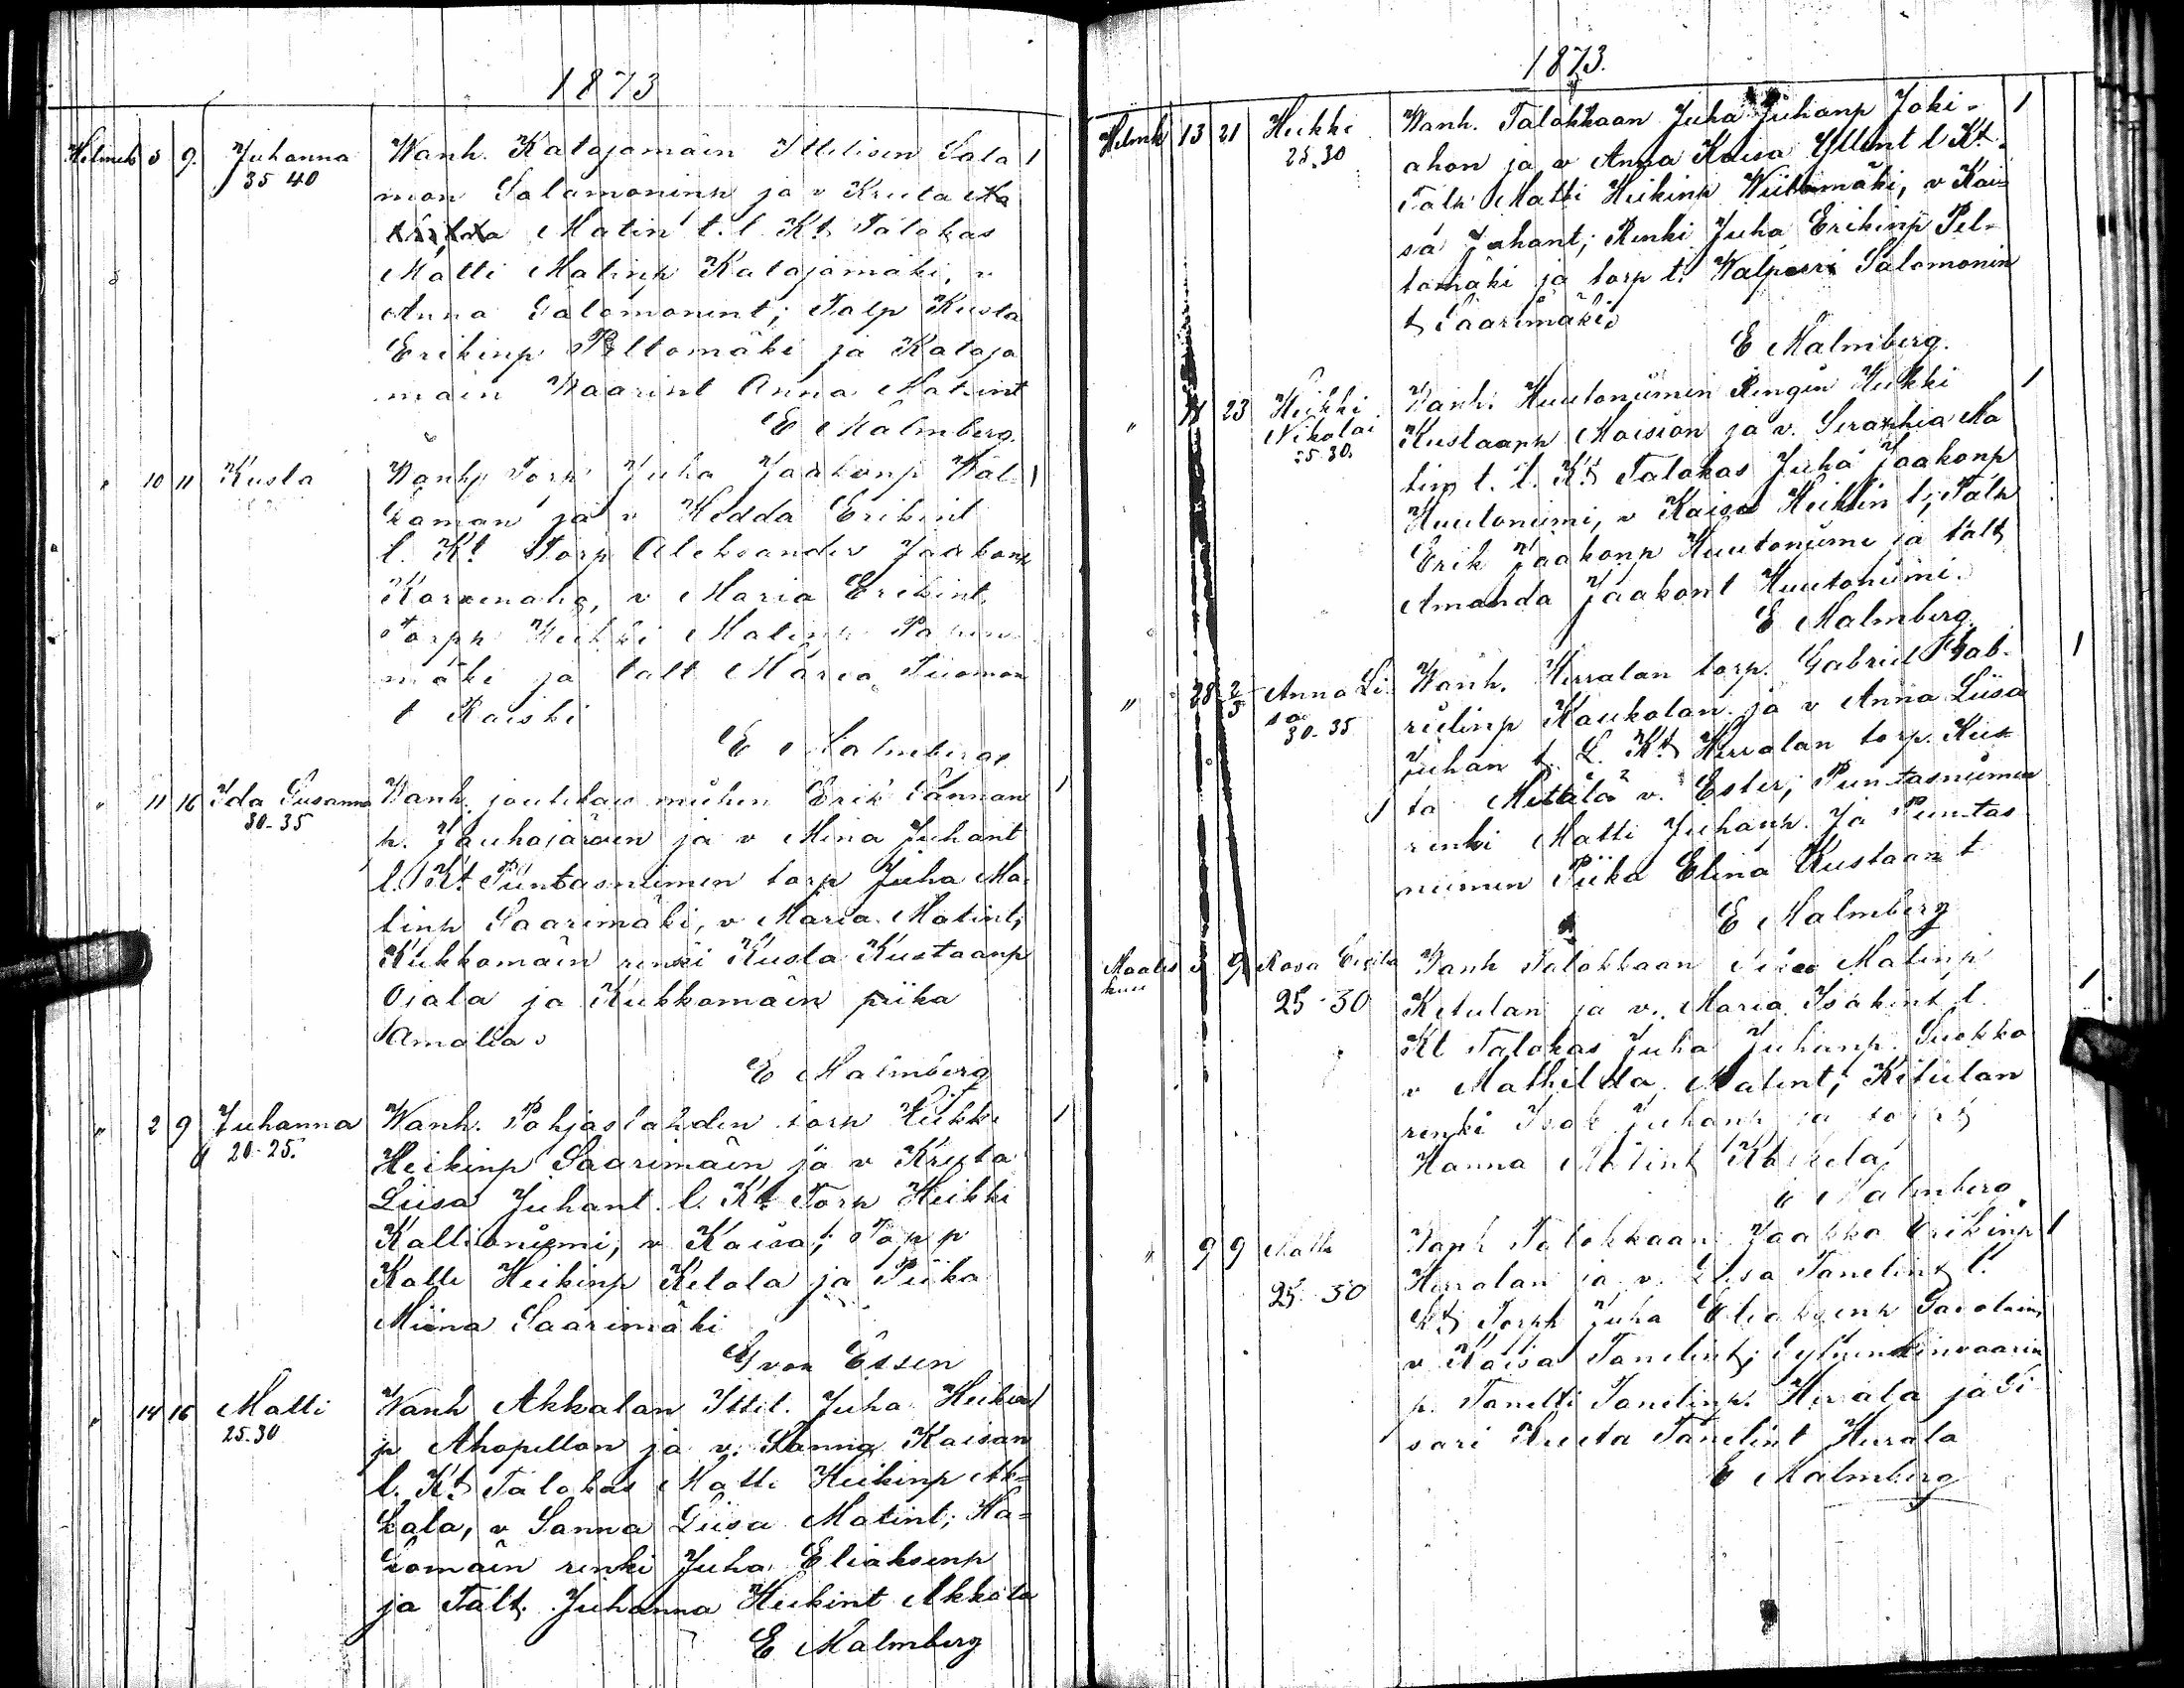 1873
Helmik 5 9. Juhanna Wanh. Katajamäin Ittelisen Salo 1
35 40 mon Salamoninp ja v Kreeta
Matin t. l. Kt Talokas
Matti Matinp Katajamäki, v
Anna Salomonint; Talp Kusta
Erikinp Peltomäki ja Kataja
mäin Waarint Anna Matint
E Malmberg.
" 10 11 Kusta Wanh Torp Juha Jaakonp 1
ja v Hedda Erikint
l. Kt Torp Aleksander Jaakonp
Korvenaho, v Maria Erikint,
Torpp Heikki Matinp
mäki ja talt Maria Tuomon
t Kaiski
E Malmberg
" 11 16 Ida Susanna Wanh. joutilais miehen Erik 1
30-35 p. Jauhojärven ja v Mina Juhant
l. Kt. Puntasniemen torp Juha Ma
tinp Saarimäki, v Maria Matint;
Kukkomäin renki Kusta Kustaanp
Ojala ja Kukkomäin piika
Amalia
E Malmberg
" 2 9 Juhanna Wanh. Pohjaslahden torp Heikki 1
20-25. Heikinp Saarimäin ja v Kreeta
Liisa Juhant. l. Kt Torp Heikki
Kallioniemi, v Kaisa; Torpp
Kalle Heikinp Ketola ja Piika
Miina Saarimäki
G von Essen
" 14 16 Matti Wanh Akkalan Ittel. Juha Heikin 1
25.30 p Ahopellon ja v. Sanna Kaisan
l. Kt Talokas Matti Heikinp Ak=
kala, v Sanna Liisa Matint; Ha=
komäin renki Juha Eliaksenp
ja Talt. Juhanna Heikint Akkala
E Malmberg
1873.
Helmk 13 21 Heikki Wanh. Talokkaan Juha Juhanp Joki- 1
25.30 ahon ja v Anna Kaisa Yllent l Kt.
Talp Matti Heikinp Wiitamäki, v Kai=
sa Juhant; Renki Juha Erikinp Pel=
tomäki ja torp t. Walpuri Salomonin
t Saarimäki
E Malmberg.
" 11 23 Heikki Wanh. Huutoniemen Rengin Heikki 1
Nikolai Kustaanp Moision ja v. Seraphia Ma
25.30. tin t. l. Kt Talokas Juha Jaakonp
Huutoniemi, v Kaisa Heikin t; Talp
Erik Jaakonp Huutoniemi ja talt
Amanda Jaakont Huutoniemi.
E Malmberg.
" 28 2/3 Anna Li Wanh. Herralan torp. Gabriel Gab- 1
sa rielinp Kaukolan ja v Anna Liisa
30-35 Juhan t. L. Kt Herralan torp. Kus
ta Mettälä v. Ester; Puntasniemen
renki Matti Juhanp. Ja Puntas
niemen Piika Elina Kustaan t
E Malmberg
Maalis 9 Rosa Wanh Talokkaan Matinp
kuu 25-30 Ketulan ja v. Maria Isakint l. 1
Kt Talokas Juha Juhanp. Suokko
v Mathilda Matint; Ketulan
renki Isak Juhanp ja
Hanna Matint
E Malmberg
" 9 9 Matti Wanh Talokkaan Jaakko Erikinp 1
25-30 Herralan ja v. Liisa Tanelint l.
Kt Torpp Juha
v Kaisa Tanelint;
p. Tanelli Tanelinp. Herrala ja Si
sari Kreeta Tanelint Herrala
E Malmberg